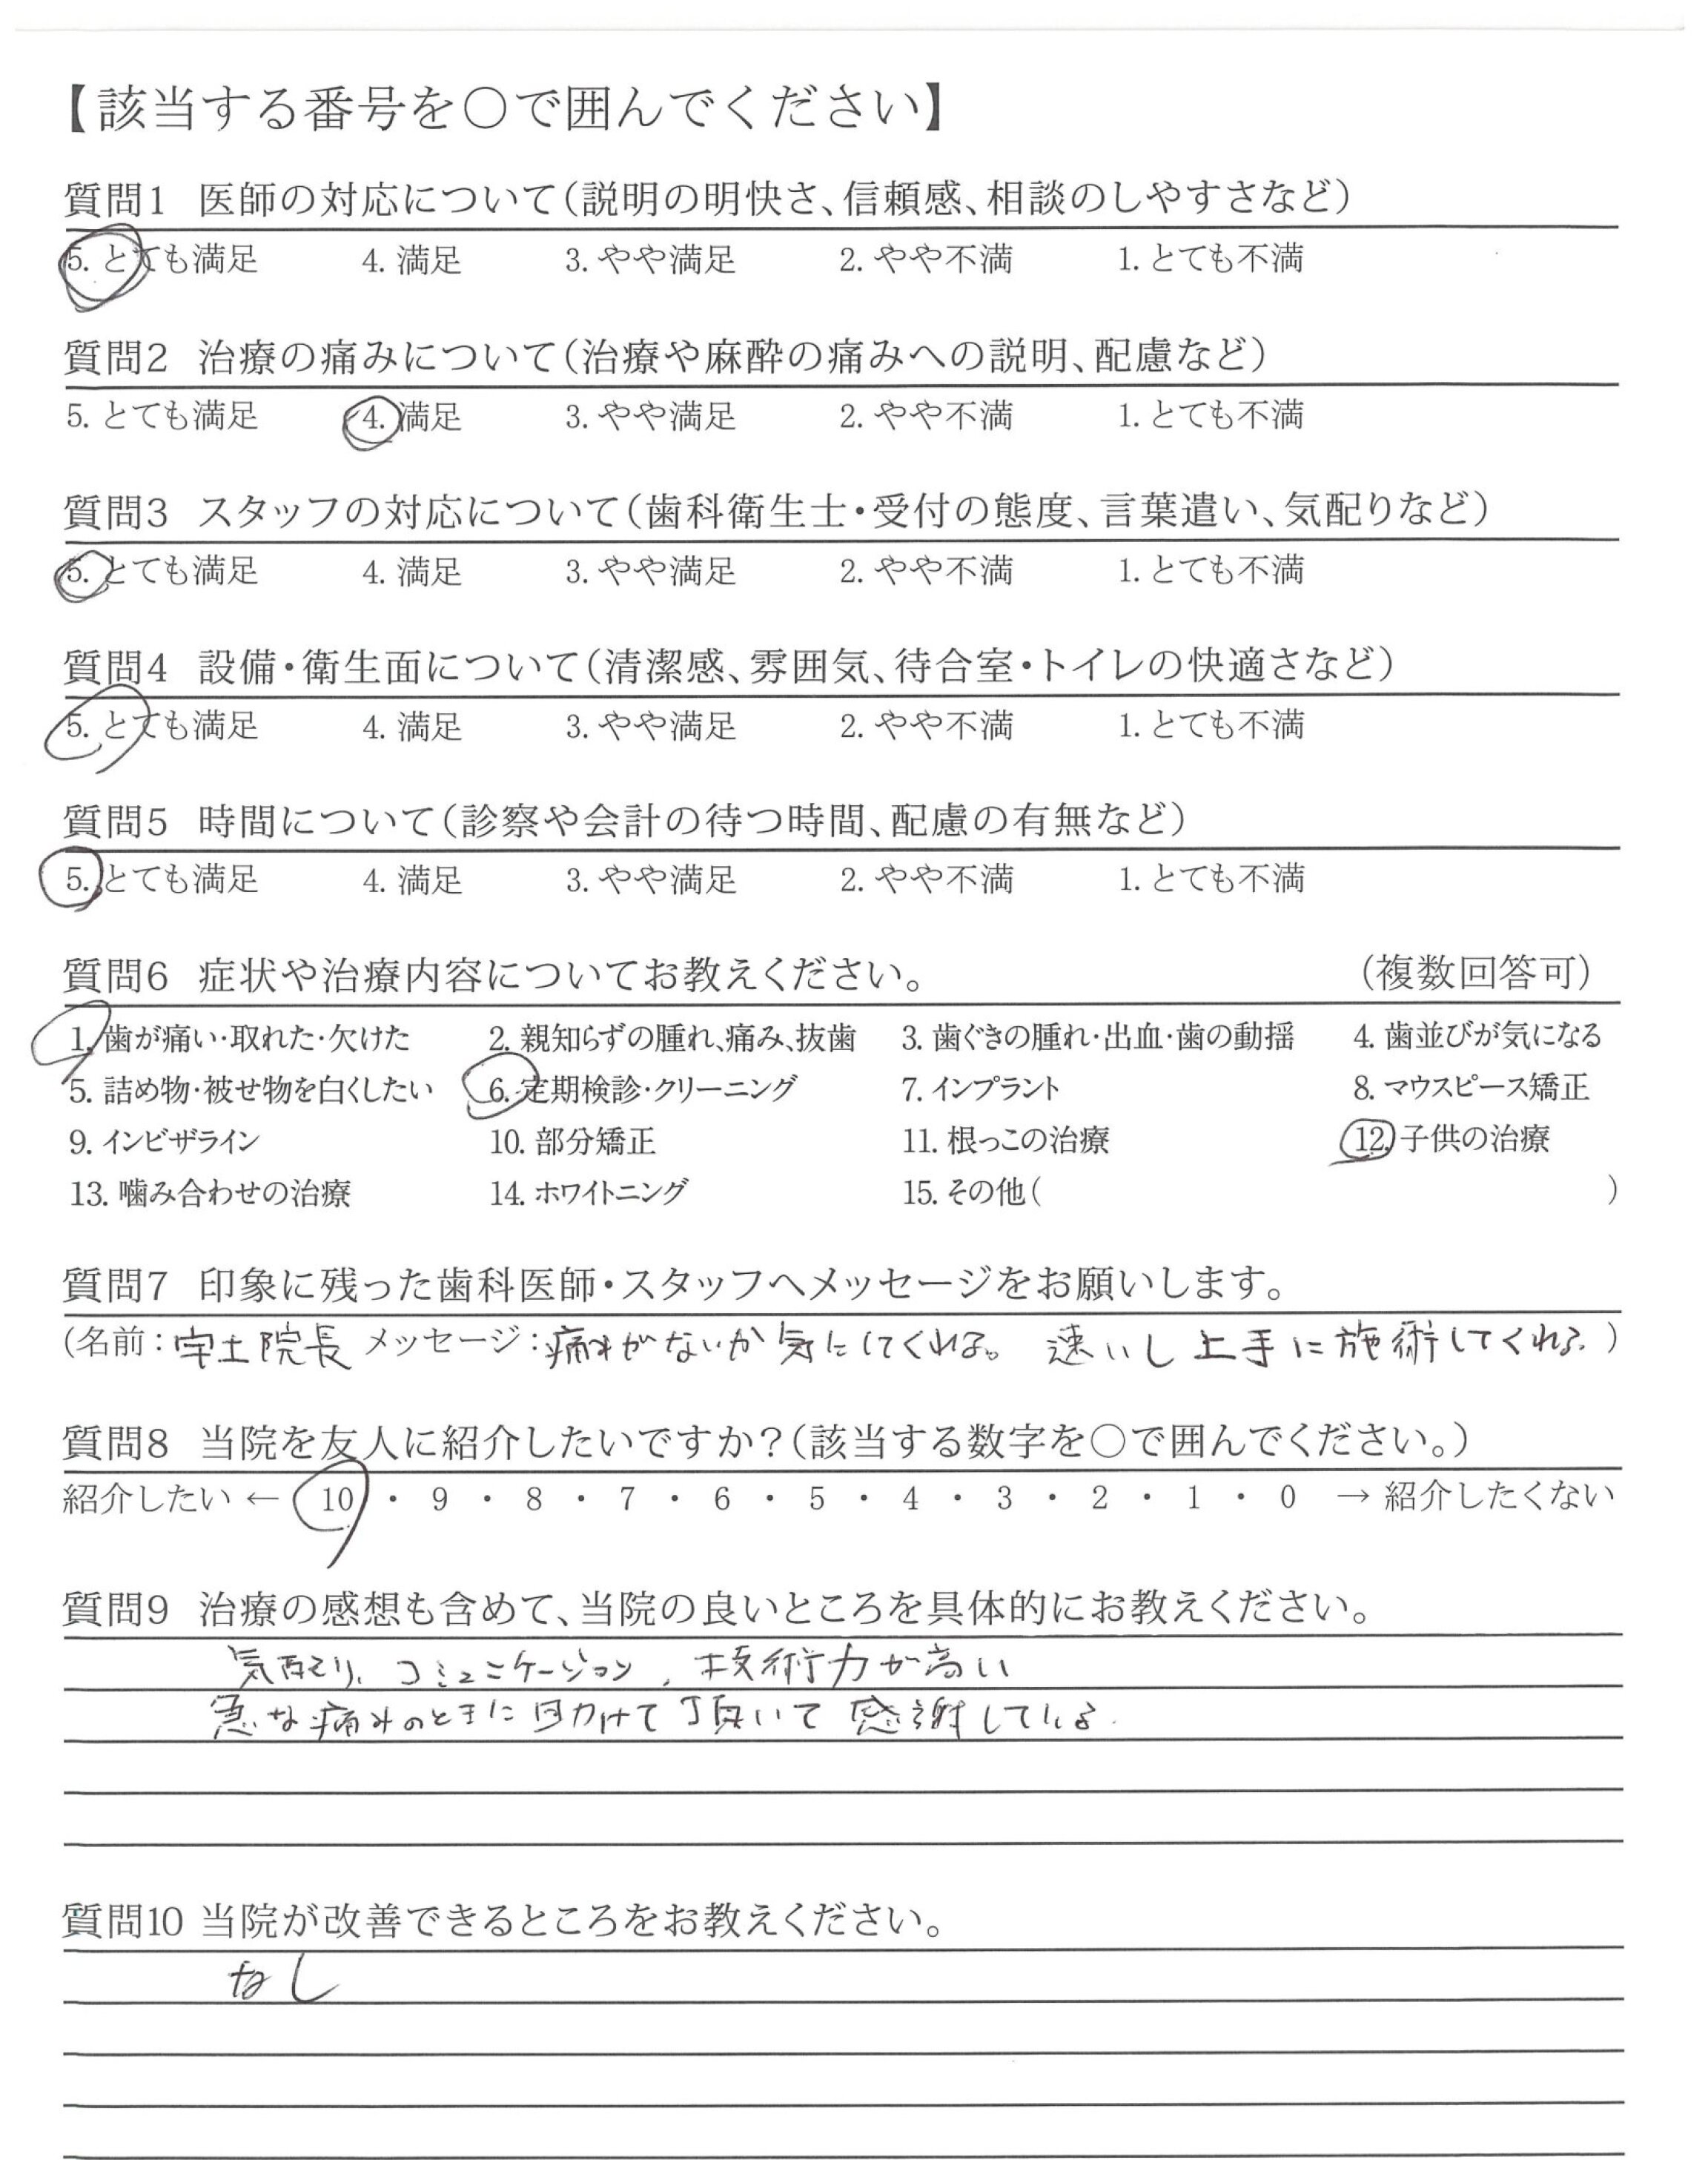 【該当する番号を○で囲んでください】
質問1 医師の対応について(説明の明快さ、信頼感、相談のしやすさなど)
5. とても満足 4. 満足 3. やや満足 2. やや不満 1. とても不満
質問2 治療の痛みについて(治療や麻酔の痛みへの説明、配慮など)
5. とても満足 4. 満足 3. やや満足 2. やや不満 1. とても不満
質問3 スタッフの対応について(歯科衛生士・受付の態度、言葉遣い、気配りなど)
5. とても満足 4. 満足 3. やや満足 2. やや不満 1. とても不満
質問4 設備・衛生面について(清潔感、雰囲気、待合室・トイレの快適さなど)
5. とても満足 4. 満足 3. やや満足 2. やや不満 1. とても不満
質問5 時間について(診察や会計の待つ時間、配慮の有無など)
5. とても満足 4. 満足 3. やや満足 2. やや不満 1. とても不満
質問6 症状や治療内容についてお教えください。 (複数回答可)
1. 歯が痛い・取れた・欠けた 2. 親知らずの腫れ、痛み、抜歯 3. 歯ぐきの腫れ・出血・歯の動揺 4. 歯並びが気になる
5. 詰め物・被せ物を白くしたい 6. 定期検診・クリーニング 7. インプラント 8. マウスピース矯正
9. インビザライン 10. 部分矯正 11. 根っこの治療 12. 子供の治療
13. 噛み合わせの治療 14. ホワイトニング 15. その他( )
質問7 印象に残った歯科医師・スタッフへメッセージをお願いします。
(名前:宇土院長 メッセージ:痛みがないか気にしてくれる。 速いし上手に施術してくれる。)
質問8 当院を友人に紹介したいですか?(該当する数字を○で囲んでください。)
紹介したい ← 10 ・ 9 ・ 8 ・ 7 ・ 6 ・ 5 ・ 4 ・ 3 ・ 2 ・ 1 ・ 0 → 紹介したくない
質問9 治療の感想も含めて、当院の良いところを具体的にお教えください。
気配り、コミュニケーション、技術力が高い
急な痛みのときに助けて頂いて感謝している。
質問10 当院が改善できるところをお教えください。
なし